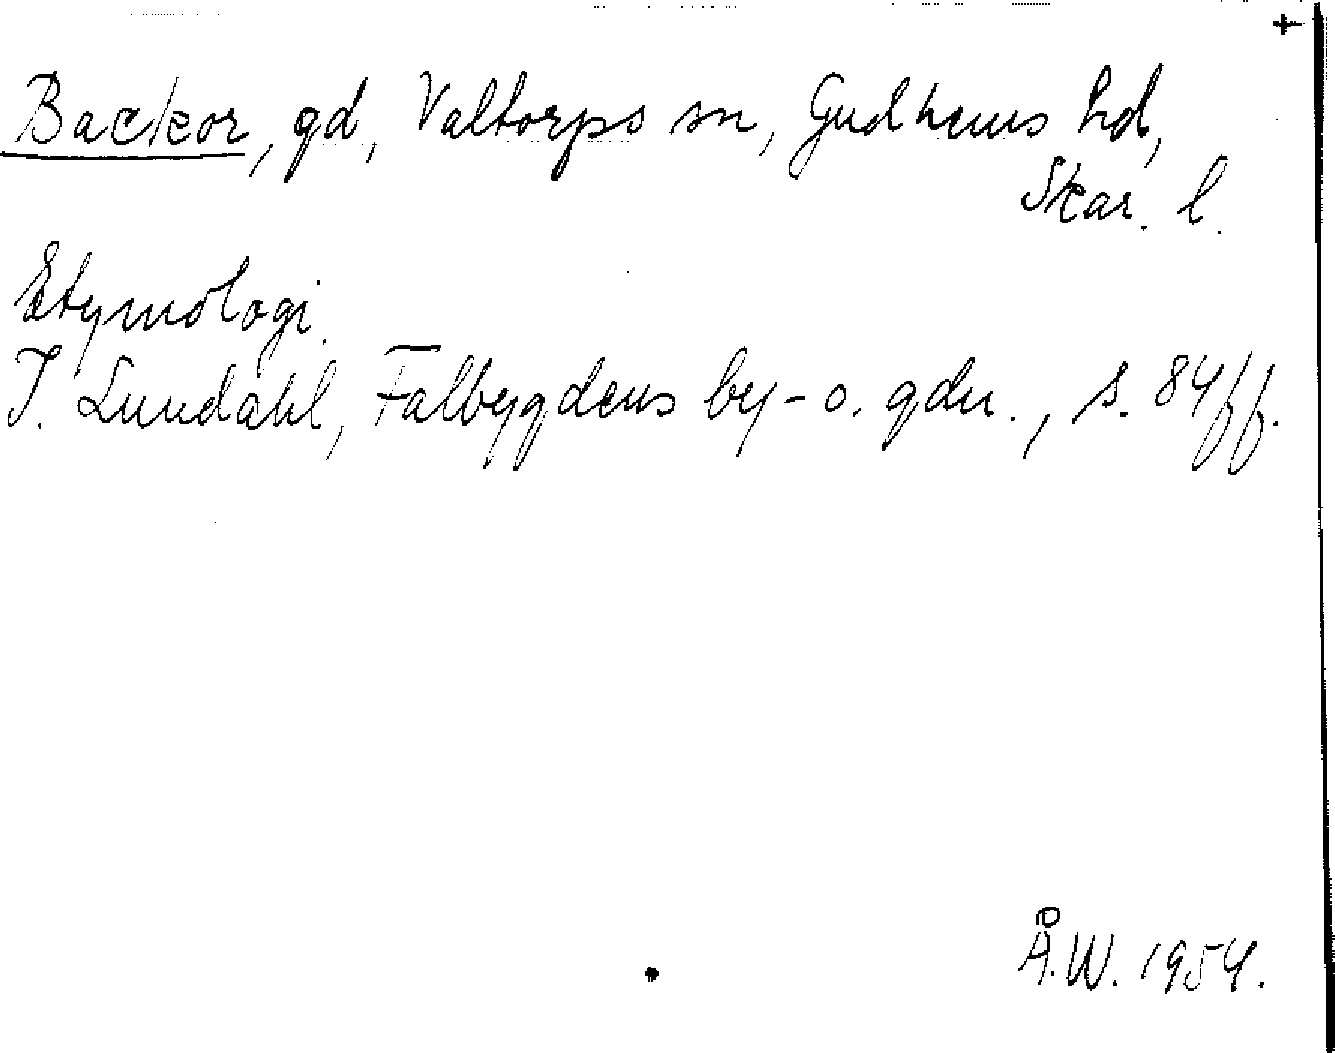 +
Backor, gd, Valtorps sn, Gudhems hd,
Skar. l.
Etymologi.
I. Lundahl, Falbygdens by- o. gdn., s. 84 ff.
Å.W. 1954.